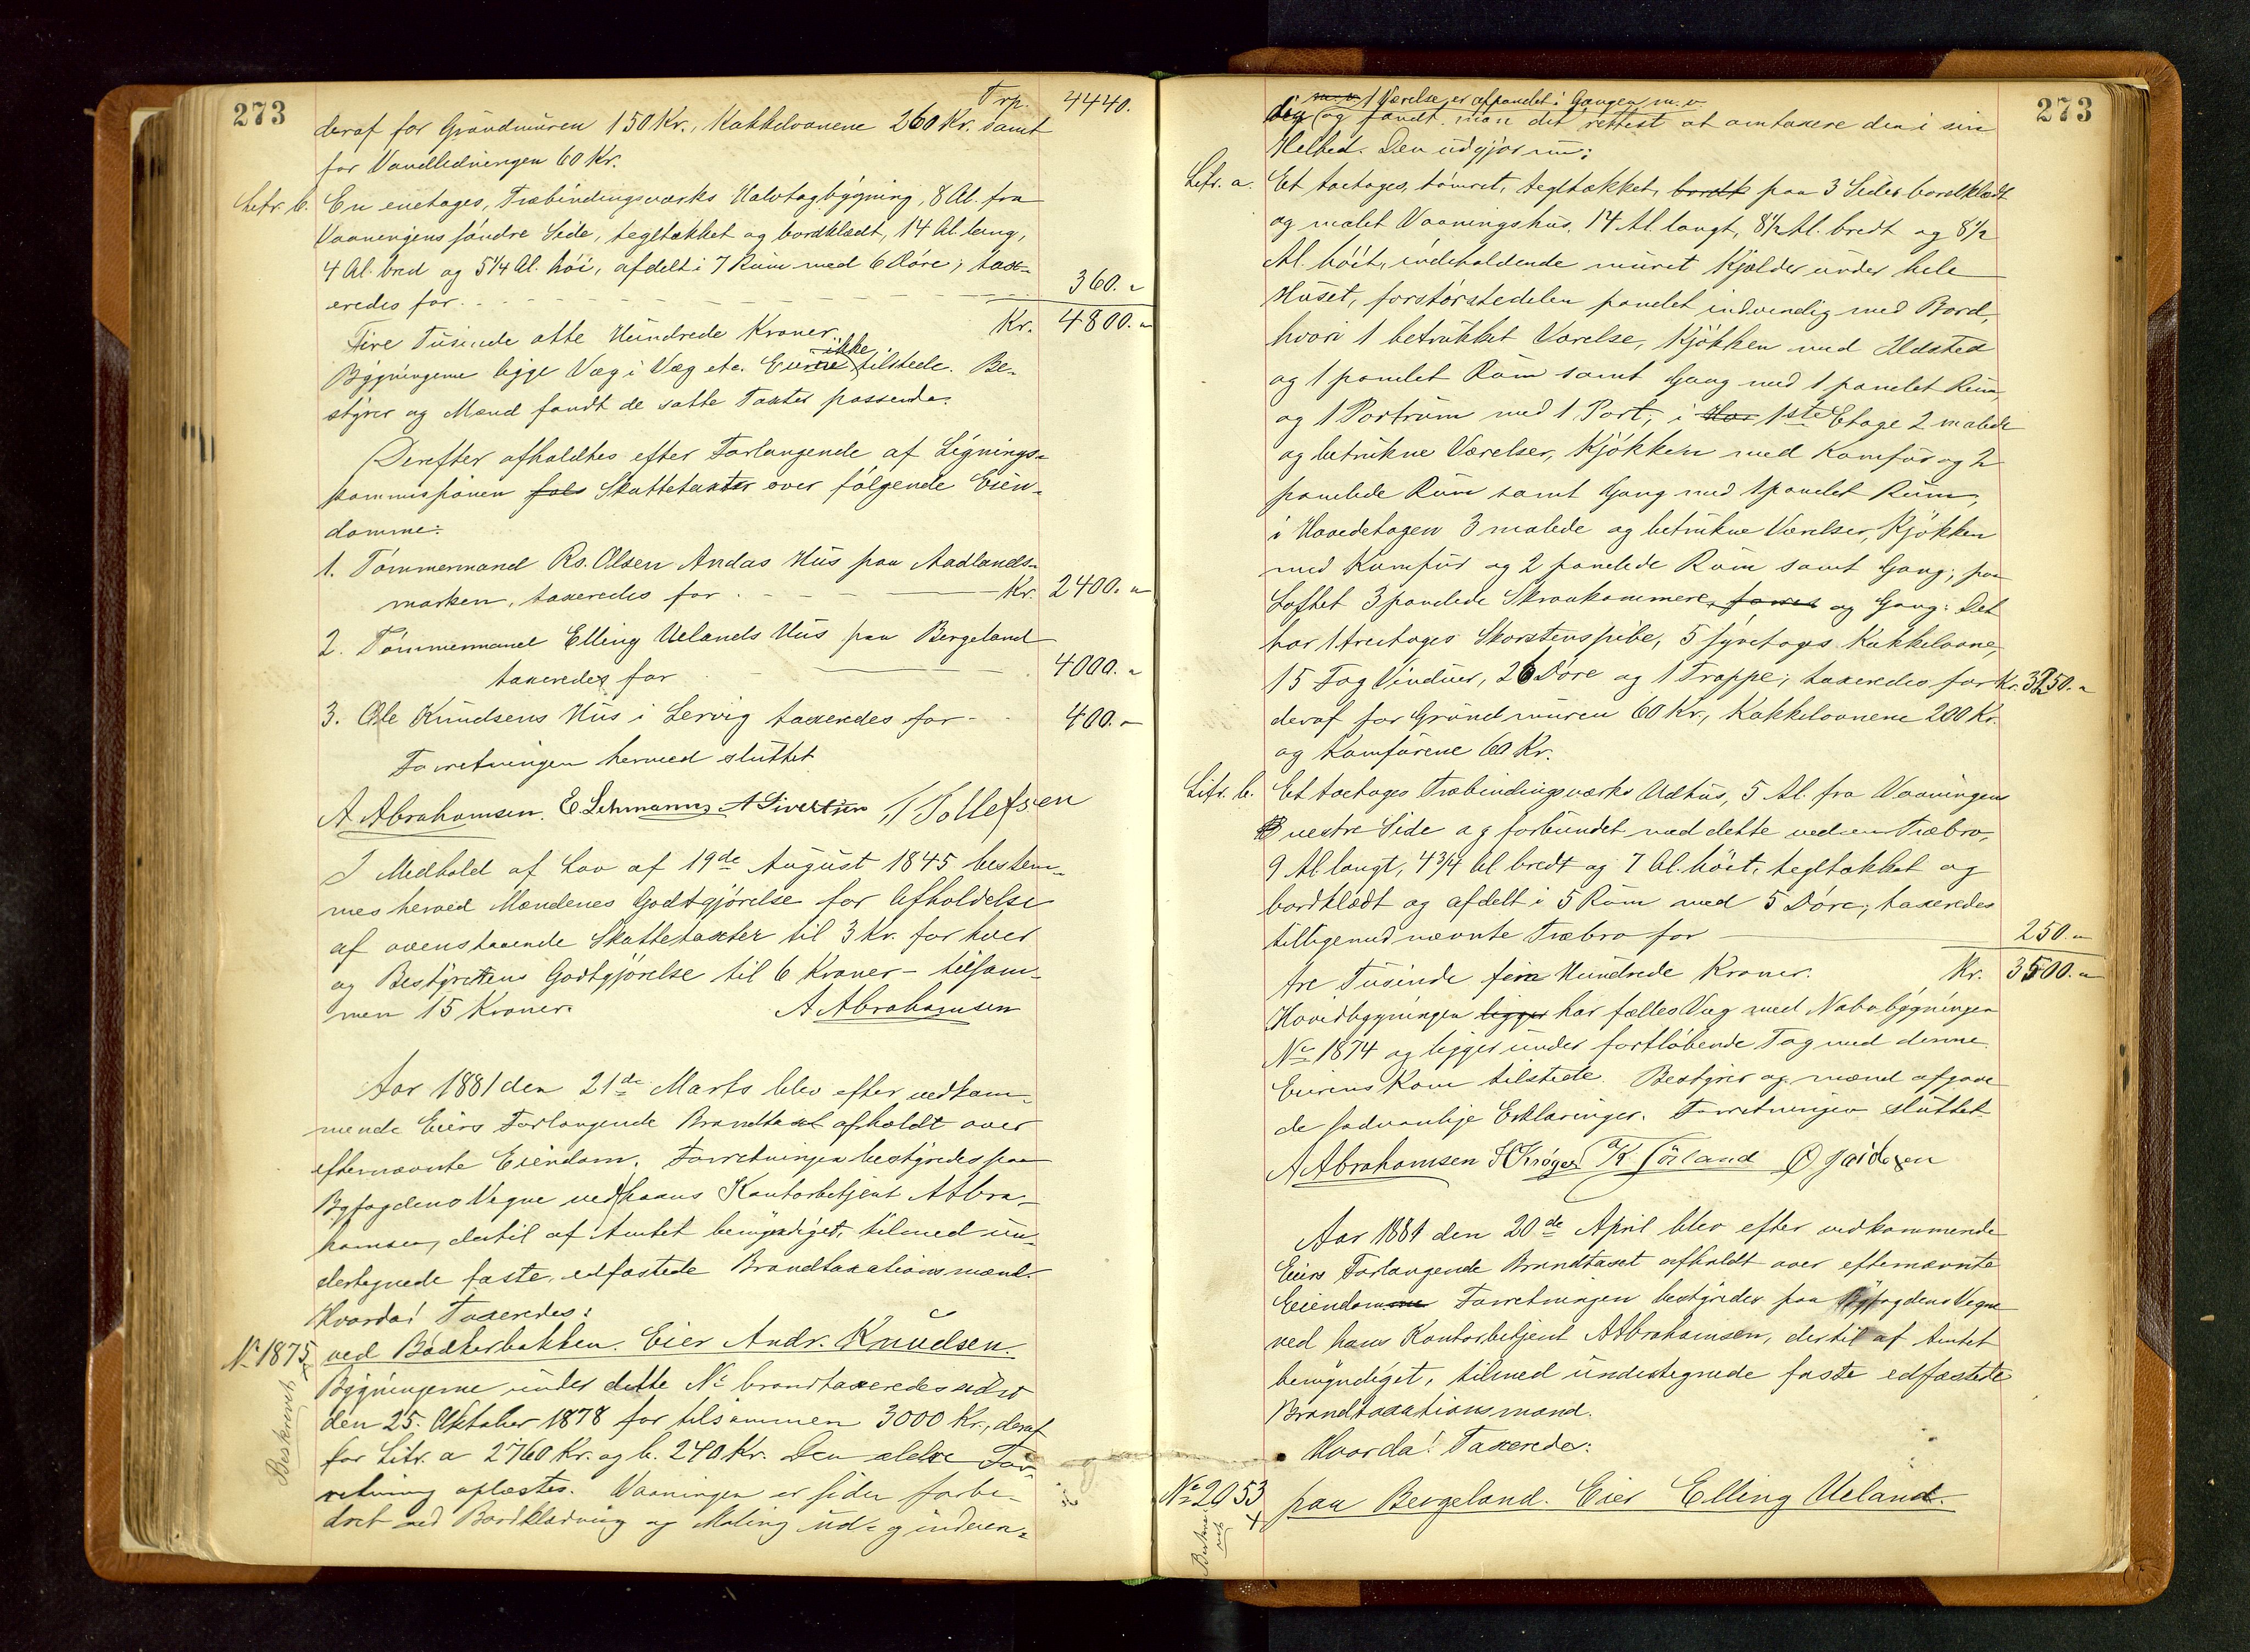 273
Trp. 4440.
deraf for Grundmuren 150 Kr., Kakkelovnene 260 Kr. samt
for Vandledningen 60 Kr.
Litr. b. En enetages, Træbindingsværks Halvtagbygning, 8 Al. fra
Vaaningens søndre Side, tegltækket og bordklædt, 14 Al. lang,
4 Al. bred og 5 1/4 Al. høi, afdelt i 7 Rum med 6 Døre; tax-
eredes for 360.-
Fire Tusinde otte Hundrede Kroner. Kr. 4800.-
Bygningerne ligge Væg i Væg etc. Eieren ikke tilstede. Be-
styrer og Mænd fandt de satte Taxter passende.
Derefter afholdtes efter Forlangende af Lignings-
kommissionen Skattetaxter over følgende Eien-
domme:
1. Tømmermand Rs. Olsen Andas Hus paa Aadlands-
marken, taxeredes for Kr. 2400.-
2. Tømmermand Elling Uelands Hus paa Bergeland
taxeredes for 4000.-
3. Ole Knudsens Hus i Lervig taxeredes for 400.-
Forretningen hermed sluttet
A Abrahamsen. E Lehmann A Sivertsen T Tollefsen
I Medhold af Lov af 19de August 1845 bestem-
mes herved Mændenes Godtgjørelse for Afholdelse
af ovenstaaende Skattetaxter til 3 Kr. for hver
og Bestyrerens Godtgjørelse til 6 Kroner - tilsam-
men 15 Kroner. A Abrahamsen
Aar 1881 den 21de Marts blev efter vedkom-
mende Eiers Forlangende Brandtaxt afholdt over
efternævnte Eiendom. Forretningen bestyredes paa
Byfogdens Vegne ved hans Kontorbetjent A Abra-
hamsen, dertil af Amtet bemyndiget, tilmed un-
dertegnede faste, edfæstede Brandtaxationsmænd.
Hvorda! Taxeredes:
No 1875 ved Bødkerbakken. Eier Andr. Knudsen.
Beskrevet
Bygningerne under dette No brandtaxeredes sidst
den 25. Oktober 1878 for tilsammen 3000 Kr., deraf
for Litr. a 2760 Kr. og b. 240 Kr. Den ældre For-
retning oplæstes. Vaaningen er siden forbe-
dret ved Bordklædning og Maling ud- og indven-
273
m.v. 1 Værelse er afpanelet i Gangen m.v.
dig og fandt man det rettest at omtaxere den i sin
Helhed. Den udgjør nu:
Litr. a. Et toetages, tømret, tegltækket, bordk paa 3 Sider bordklædt
og malet Vaaningshus, 14 Al. langt, 8 1/2 Al. bredt og 8 1/2
Al. høit, indeholdende muret Kjælder under hele
Huset, forstørstedelen panelet indvendig med Bord,
hvori 1 betrukket Værelse, Kjøkken med Ildsted
og 1 panelet Rum samt Gang med 1 panelet Rum,
og 1 Portrum med 1 Port; i 1ste Etage 2 malede
og betrukne Værelser, Kjøkken med Komfur og 2
panelede Rum samt Gang med 1 panelet Rum,
i Hovedetagen 3 malede og betrukne Værelser, Kjøkken
med Komfur og 2 panelede Rum samt Gang; paa
Loftet 3 panelede Skraakammere, og Gang: Det
har 1 treetages Skorstenspibe, 5 fyretages Kakkelovne,
15 Fag Vinduer, 26 Døre og 1 Trappe; taxeredes for Kr. 3250.-
deraf for Grundmuren 60 Kr., Kakkelovnene 200 Kr.
og Komfurene 60 Kr.
Litr. b. Et toetages Træbindingsværks Udhus, 5 Al. fra Vaaningens
vestre Side og forbundet med dette ved en Træbro,
9 Al. langt, 4 3/4 Al bredt og 7 Al. høit, tegltækket og
bordklædt og afdelt i 5 Rum med 5 Døre; taxeredes
tilligemed nævnte Træbro for 250.-
Tre Tusinde fem Hundrede Kroner. Kr. 3500.-
Hovedbygningen ligger har fælles Væg med Nabobygningen
No 1874 og ligger under fortløbende Tag med denne.
Eierens Kone tilstede. Bestyrer og mænd afgave
de sædvanlige Erklæringer. Forretningen sluttet
A Abrahamsen
Aar 1881 den 20de April blev efter vedkommende
Eiers Forlangende Brandtaxt afholdt over efternævnte
Eiendomme Forretningen bestyredes paa Byfogdens Vegne
ved hans Kontorbetjent A Abrahamsen, dertil af Amtet
bemyndiget, tilmed undertegnede faste edfæstede
Brandtaxationsmænd.
Hvorda! Taxeredes:
No 2053 paa Bergeland. Eier Elling Ueland.
Beskrevet